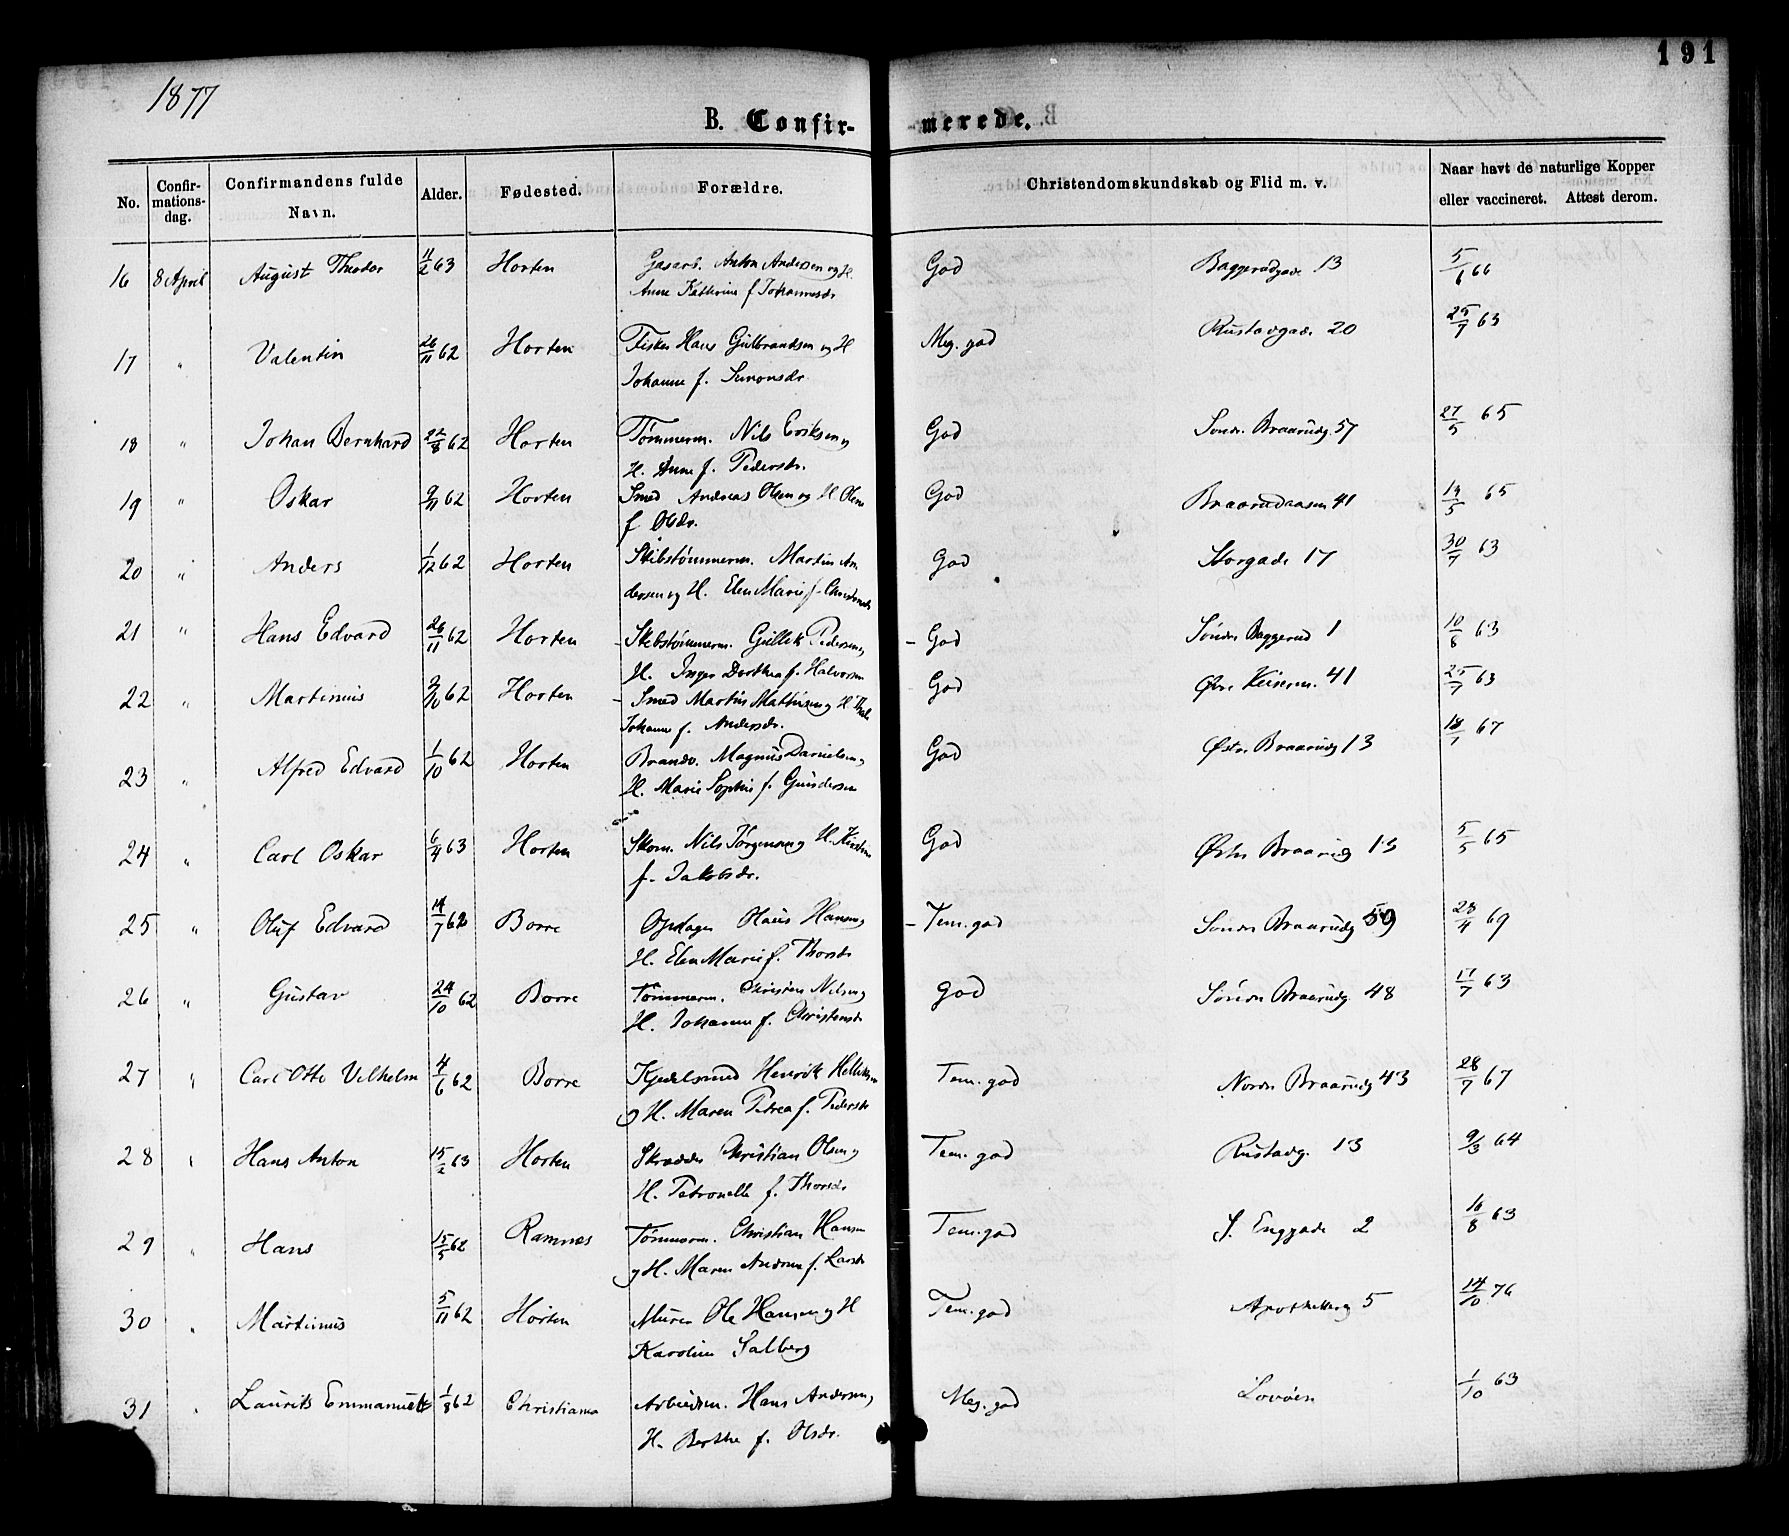 1877
191
B. Confir- merede.
No. Confir-mations-dag. Confirmandens fulde Navn. Alder. Fødested. Forældre. Christendomskundskab og Flid m. v. Naar havt de naturlige Kopper eller vaccineret. Attest derom.
16 8 April August Theodor 11/2 63 Horten Anton Andersen og H. God Baggerødgade 13 5/6 66
Anne Katherine f. Johannesdr
17 " Valentin 26/11 62 Horten Fisker Hans Gulbrandsen og H Meg. god Rustadgade 20 25/7 63
Johanne f. Simonsdr.
18 " Johan Bernhard 22/8 62 Horten Tømmerm. Nils Eriksen og God Sondr. Braarudg. 57 27/5 65
H. Anne f. Pedersdr.
19 " Oskar 9/11 62 Horten Smed Andreas Olsen og H. God Braarudaasen 41 65
f. Olsdr.
20 " Anders 1/12 62 Horten Skibstømmerm. Martin An God Storgade 17 30/7 63
dersen og H. Elen Marie f.
21 " Hans Edvard 26/11 62 Horten - Skibstømmerm. Gullik Pedersen og - God Søndr Baggerud 1 10/6 63
H. Inger Dorthea f. Halvorsen
22 " Martinius 62 Horten - Smed Martin Mathisen og H. - God Keiserm. 41 25/7 63
Johanne f. Andersdr.
23 " Alfred Edvard 1/10 62 Horten Brandv. Magnus Danielsen og God Østr. Braarudg 13 18/7 67
H. Marie Sophie f. Gundersen
24 " Carl Oskar 6/4 63 Horten Skom. Nils Jørgensen og H. Kirstine God Østr Braarudg 13 5/5 65
f. Jakobsdr.
25 " Oluf Edvard 14/7 62 Borre Opdager Olaus Hansen og - Tem. god Søndr Braarudg 59 28/4 69
H. Elen Marie f. Thorsdr
26 " Gustav 24/10 62 Borre Tømmerm. Christen Nilsen og god Søndr Braarudg 48 17/7 63
H. Johanne f. Christensdr
27 " Carl Otto Vilhelm 4/6 62 Borre Kjedelsmed Henrik Helliksen Tem. god Nordr Braarudg 43 28/7 67
og H. Maren Petrea f. Pedersdr
28 " Hans Anton 15/2 63 Horten Skrædder Christian Olsen og Tem. god Rustadg. 13 9/3 64
H. Petronelle f. Thorsdr
29 " Hans 15/5 62 Ramnæs Tømmerm. Christian Hansen Tem. god S. Enggade 2 16/8 63
og H. Maren Andrea f. Larsdr
30 " Martinius 5/11 62 Horten Murer Ole Hansen og H Tem. god Apothekerg 5 14/10 76
Karoline Salberg
31 " Laurits Emmanuel 1/8 62 Christiania Arbeidsm. Hans Andersen og Meg. god Lovøen 1/10 63
H. Berthe f. Olsdr.